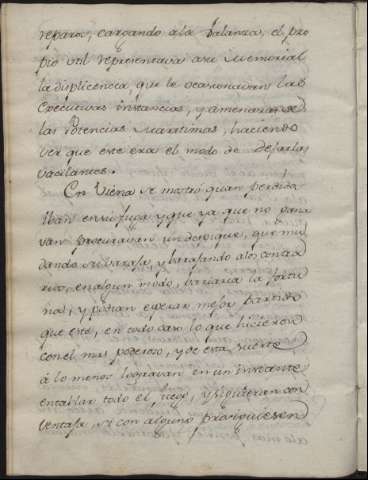 reparo, cargando ala balanza, el pro
pio vil representava a su Memorial
la displicencia que le ocasionavan las
executivas instancias, y amenazarse
las Potencias Maratimas, haciendo
ver que este era el modo de dejarlas
vacilantes.
En Viena se mostró quan perdida
iban en su fuga y que ya que no gana
van procuravan un despique, que mu
dando su baraja y barajando alos contra
rios, en algun modo, variaria la fortu
na, y podian esperar mejor partido
que este, en todo caso lo que hicieron
con el mas poderoso, y de esta suerte
á lo menos logravan en un instante
entablar todo el juego, y siguieran con
ventaja, si con alguno prosiguiesen